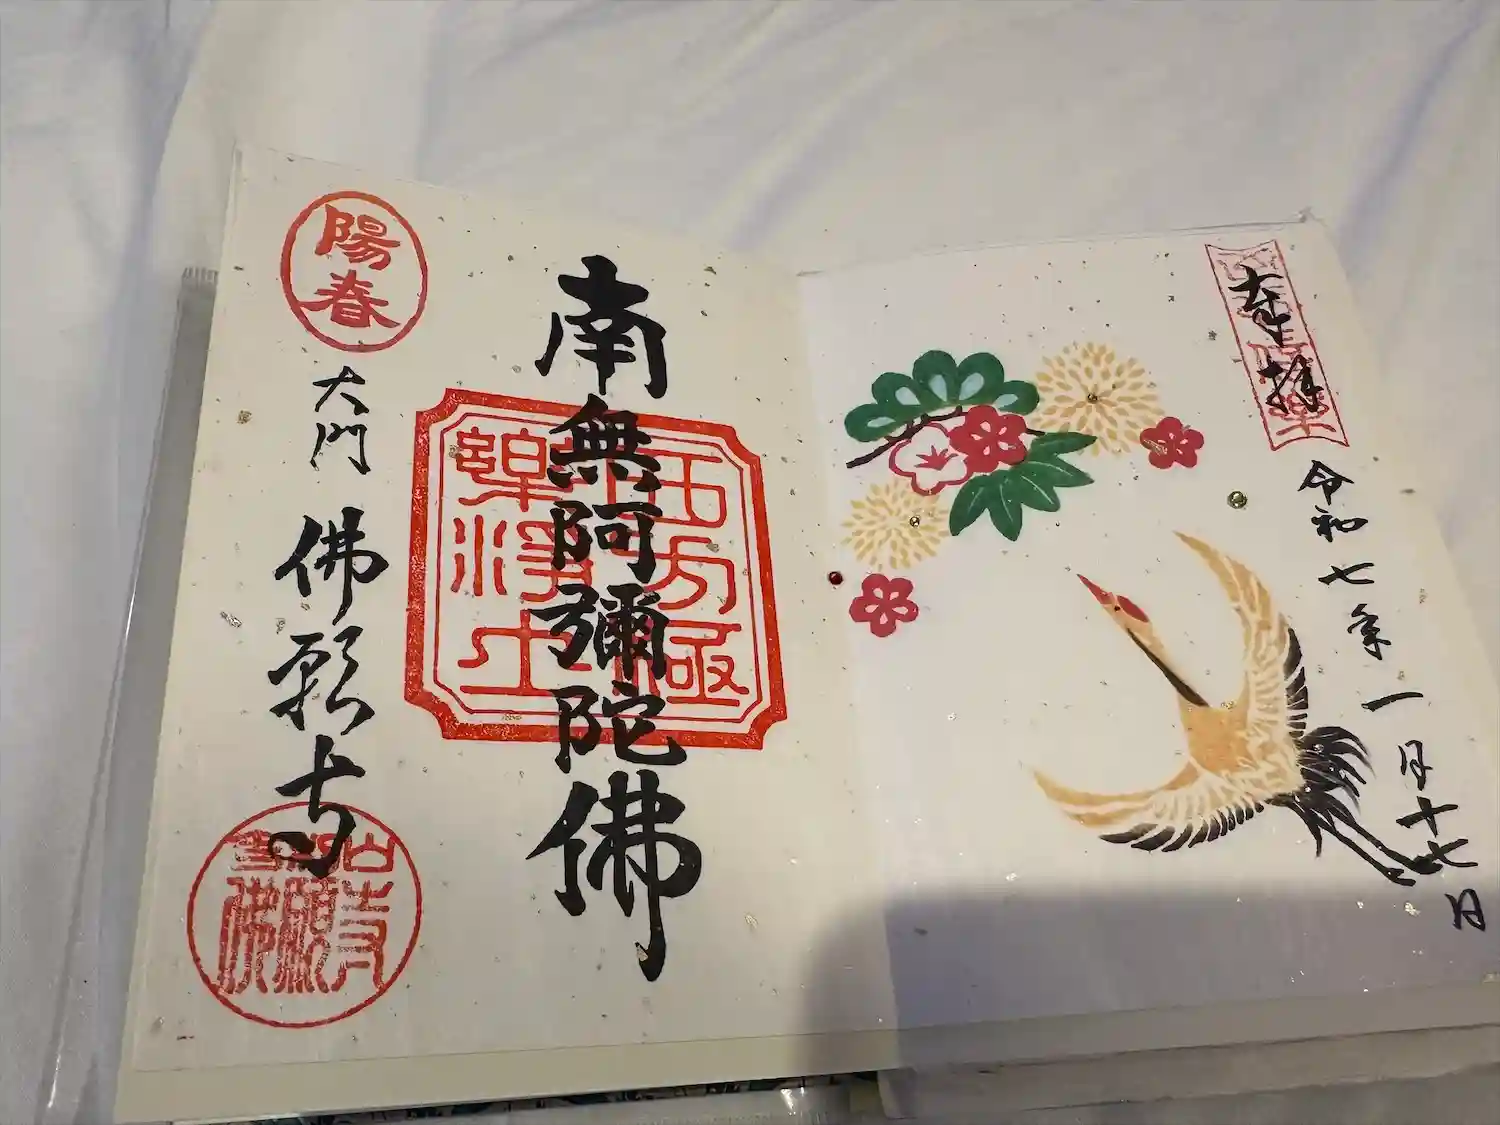 奉拝
令和七年一月十七日
南無阿彌陀佛
西方極
樂淨土
陽春
大門 佛願寺
佛願寺